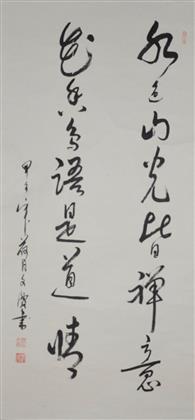 水色山光皆禪意
花香鸟語是道情
甲午年荷月文書